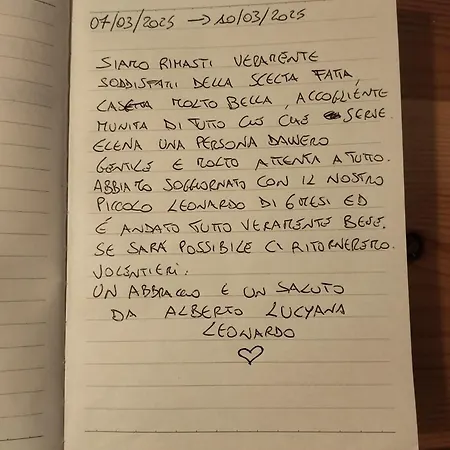 07/03/2025 → 10/03/2025
SIAMO RIMASTI VERAMENTE
SODDISFATTI DELLA SCELTA FATTA,
CASETTA MOLTO BELLA, ACCOGLIENTE
MUNITA DI TUTTO CIÒ CHE SERVE.
ELENA UNA PERSONA DAVVERO
GENTILE E MOLTO ATTENTA A TUTTO.
ABBIAMO SOGGIORNATO CON IL NOSTRO
PICCOLO LEONARDO DI 6 MESI ED
É ANDATO TUTTO VERAMENTE BENE.
SE SARÁ POSSIBILE CI RITORNEREMO.
VOLENTIERI.
UN ABBRACCIO E UN SALUTO
DA ALBERTO LUCYANA
LEONARDO
♡